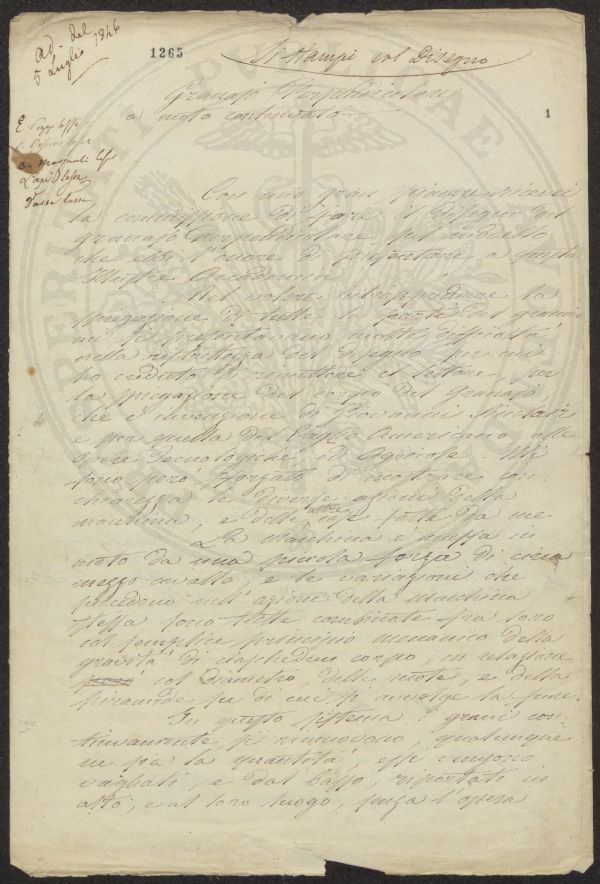 Ad. del
5 Luglio 1846
1265
Si Stampi col Disegno
Granajo Perpendicolare
a moto continuato
1
E. Poggi lesse
lesse
lesse
Lapi lesse
lesse
Con mio gran piacere ricevei
la commissione di fare il disegno del
granajo Perpendicolare, pel modello
che ebbi l'onore di presentare a questa
Illustre Accademia.
Nel volere intraprendere la
spiegazione di tutte le parti del granajo
mi si presentavano molte difficoltà
nella ristrettezza del disegno per cui
ho creduto di rimettere il lettore per
la spiegazione del corpo del Granajo
che è invenzione di Giovanni Sinclair
e per quella del Vaglio Americano alle
opere Tecnologiche ed Oggettose. Mi
sono però sforzato di mostrare con
chiarezza le diverse azioni della
macchina, e delle altre cose fatte da me
La macchina è messa in
moto da una piccola forza di circa
mezzo cavallo, e le variazioni che
succedono nell'azione della macchina
stessa sono tutte combinate fra loro
col semplice principio meccanico della
gravità di ciaschedun corpo, in relazione
però col diametro delle ruote, e della
piramide su di cui si avvolge la fune.
In questo sistema i grani con-
tinuamente si rimuovono, qualunque
ne sia la quantità, essi vengono
vagliati, e dal basso, riportati in
alto, e al loro luogo, senza l'opera